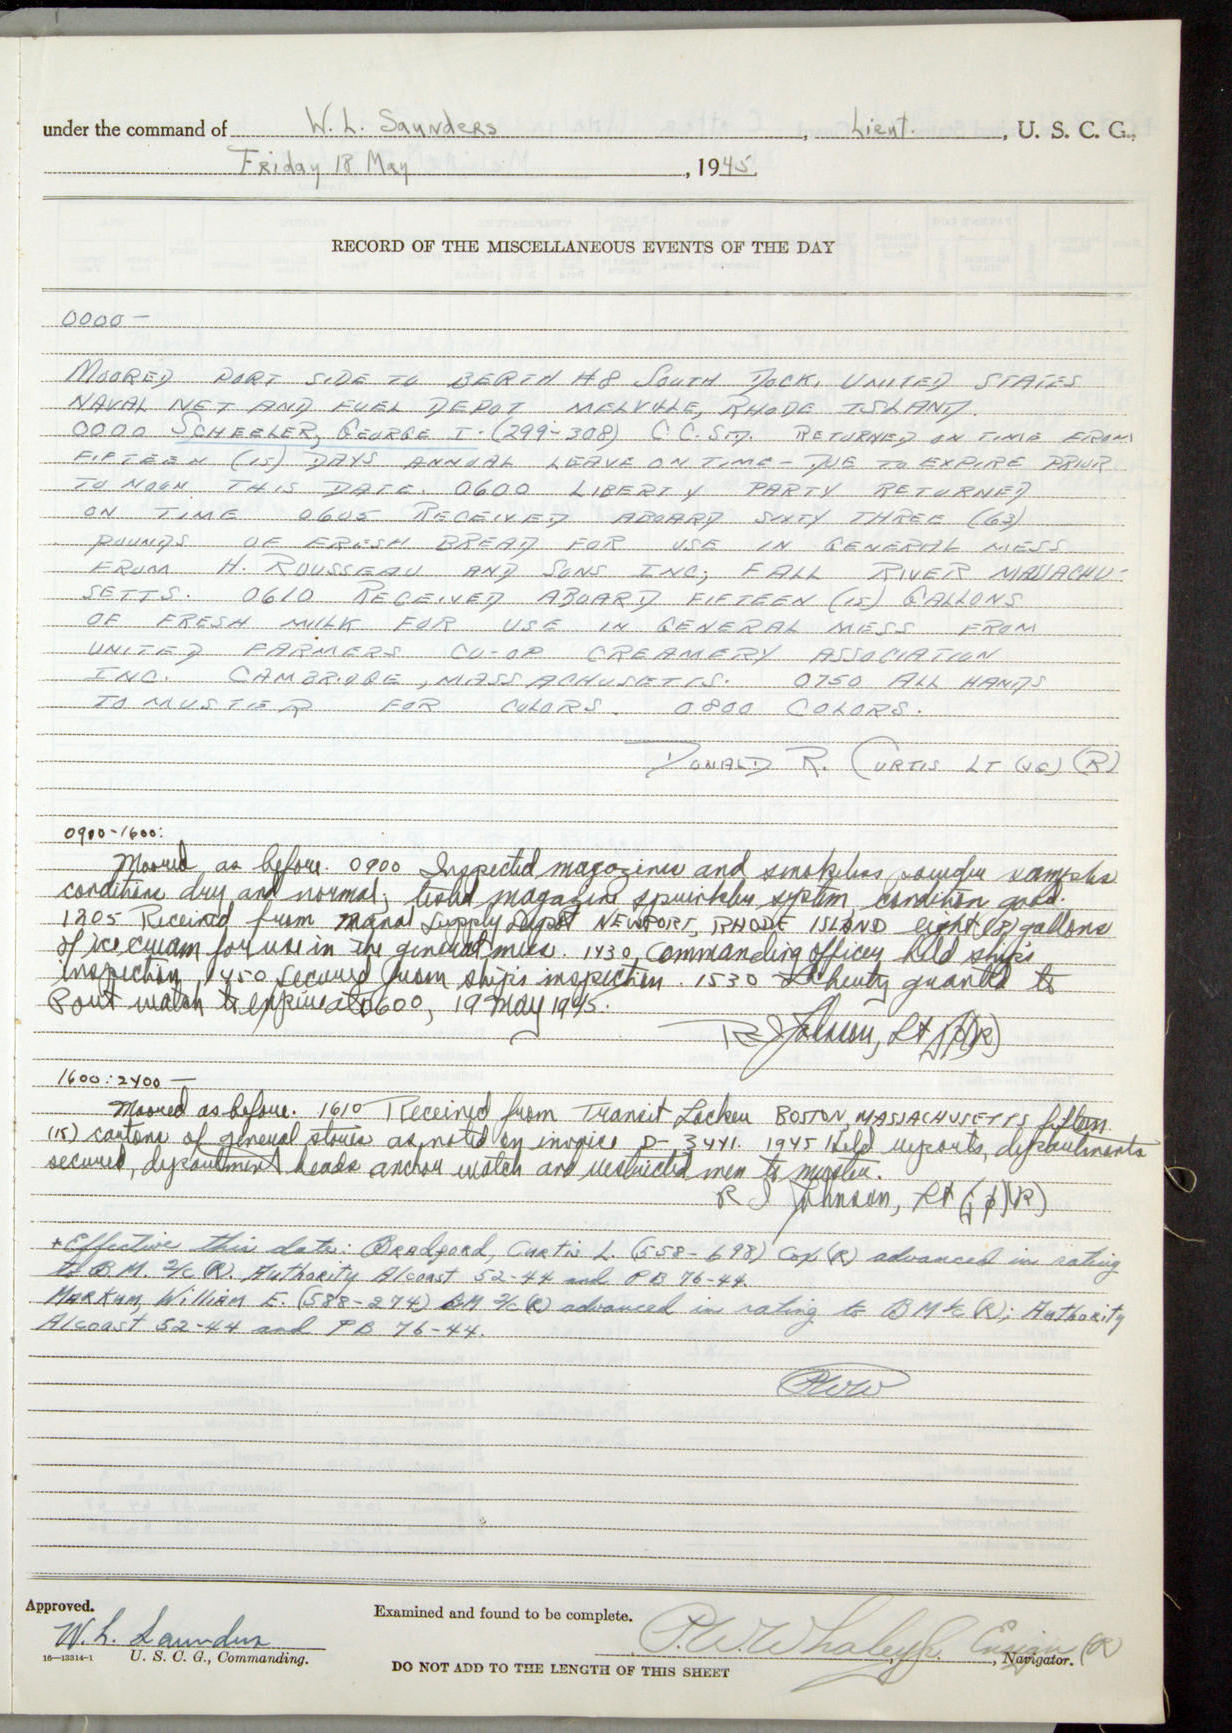 under the command of W. L. Saunders, Lieut., U. S. C. G.,
Friday 18 May, 1945.
RECORD OF THE MISCELLANEOUS EVENTS OF THE DAY
0000 -
MOORED PORT SIDE TO BERTH #8 SOUTH DOCK, UNITED STATES
NAVAL NET AND FUEL DEPOT MELVILLE, RHODE ISLAND.
0000 SCHEELER, GEORGE I. (299-308) C.C.STD. RETURNED ON TIME FROM
FIFTEEN (15) DAYS ANNUAL LEAVE ON TIME - DUE TO EXPIRE PRIOR
TO NOON THIS DATE. 0600 LIBERTY PARTY RETURNED
ON TIME 0605 RECEIVED ABOARD SIXTY THREE (63)
POUNDS OF FRESH BREAD FOR USE IN GENERAL MESS
FROM H. ROUSSEAU AND SONS INC; FALL RIVER MASSACHU-
SETTS. 0610 RECEIVED ABOARD FIFTEEN (15) GALLONS
OF FRESH MILK FOR USE IN GENERAL MESS FROM
UNITED FARMERS CO-OP CREAMERY ASSOCIATION
INC. CAMBRIDGE, MASSACHUSETTS. 0750 ALL HANDS
TO MUSTER FOR COLORS. 0800 COLORS.
DONALD R. CURTIS LT (JG) (R)
0900-1600:
Moored as before. 0900 Inspected magazines and smokeless powder samples
conditions dry and normal; tested magazine sprinkler system condition good.
1205 Received from Naval Supply Depot NEWPORT, RHODE ISLAND eight (8) gallons
of ice cream for use in the general mess. 1430, Commanding officer held ship's
inspection, 1450 secured from ship's inspection. 1530 Liberty granted to
Port watch to expire at 0600, 19 May 1945.
R J Johnson, Lt (jg)(R)
1600:2400 -
Moored as before. 1610 Received from Transit Locker BOSTON MASSACHUSETTS fifteen
(15) cartons of general stores as noted by invoice D-3441. 1945 Held reports, departments
secured, department heads anchor watch and restricted men to muster.
R J Johnson, Lt (jg)(R)
*Effective this date: Bradford, Curtis L. (558-698) Cox (R) advanced in rating
to B.M. 2/c (R). Authority Alcoast 52-44 and PB 76-44.
Markum, William E. (588-274) BM 2/c (R) advanced in rating to BM 1/c (R); Authority
Alcoast 52-44 and PB 76-44.
PWW
Approved.
Examined and found to be complete.
W. L. Saunders
P. W. Whaley Jr. Ensign (R)
16-13314-1 U. S. C. G., Commanding.
, Navigator.
DO NOT ADD TO THE LENGTH OF THIS SHEET